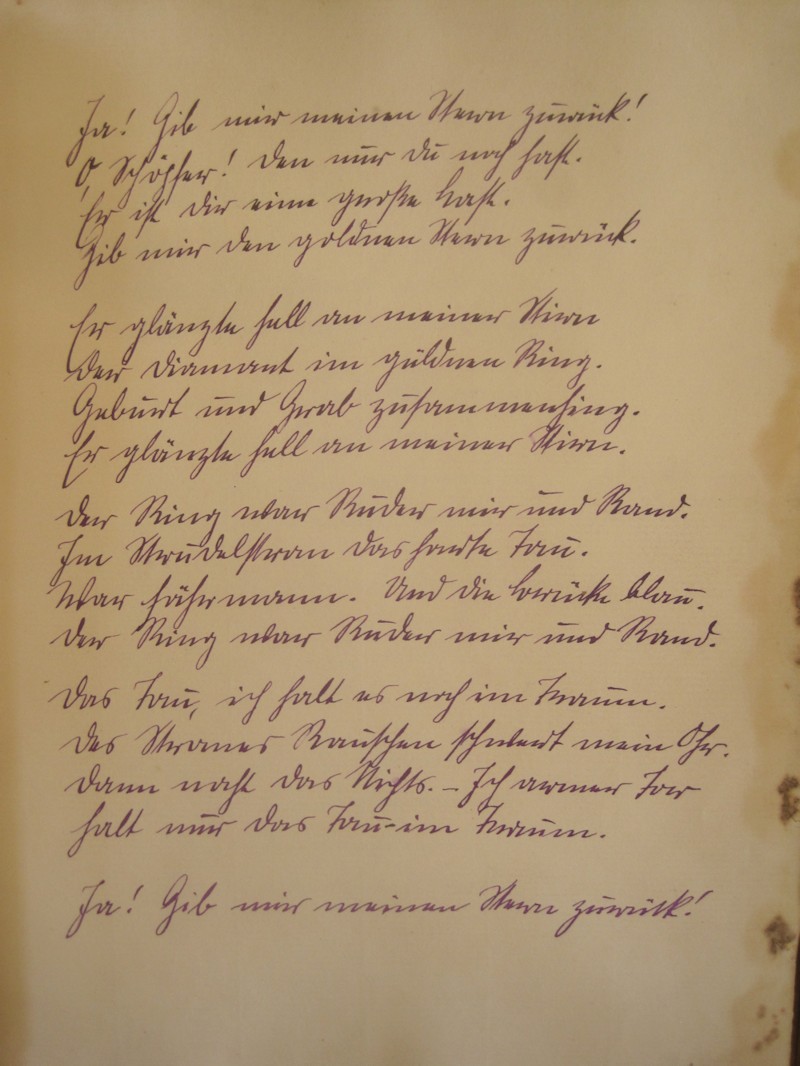 Ja! Gib mir meinen Stern zurück!
O, Schöpfer! Den nur du noch hast.
Er ist dir eine große Last.
Gib mir den goldnen Stern zurück.
Er glänzte hell an meiner Stirn
Der Diamant im güldnen Ring.
Geburt und Grab zusammenhing.
Er glänzte hell an meiner Stirn.
Der Ring war Ruder mir und Rand.
Im Strudelstran das harte Tau.
War Fährmann. Und die Brücke blau.
Der Ring war Ruder mir und Rand.
Das Tau, ich halt es noch im Traum.
Des Stranes Rauschen schwert mein Ohr.
Dann naht das Nichts. – Ich armer Tor
halt nur das Tau – im Traum.
Ja! Gib mir meinen Stern zurück!